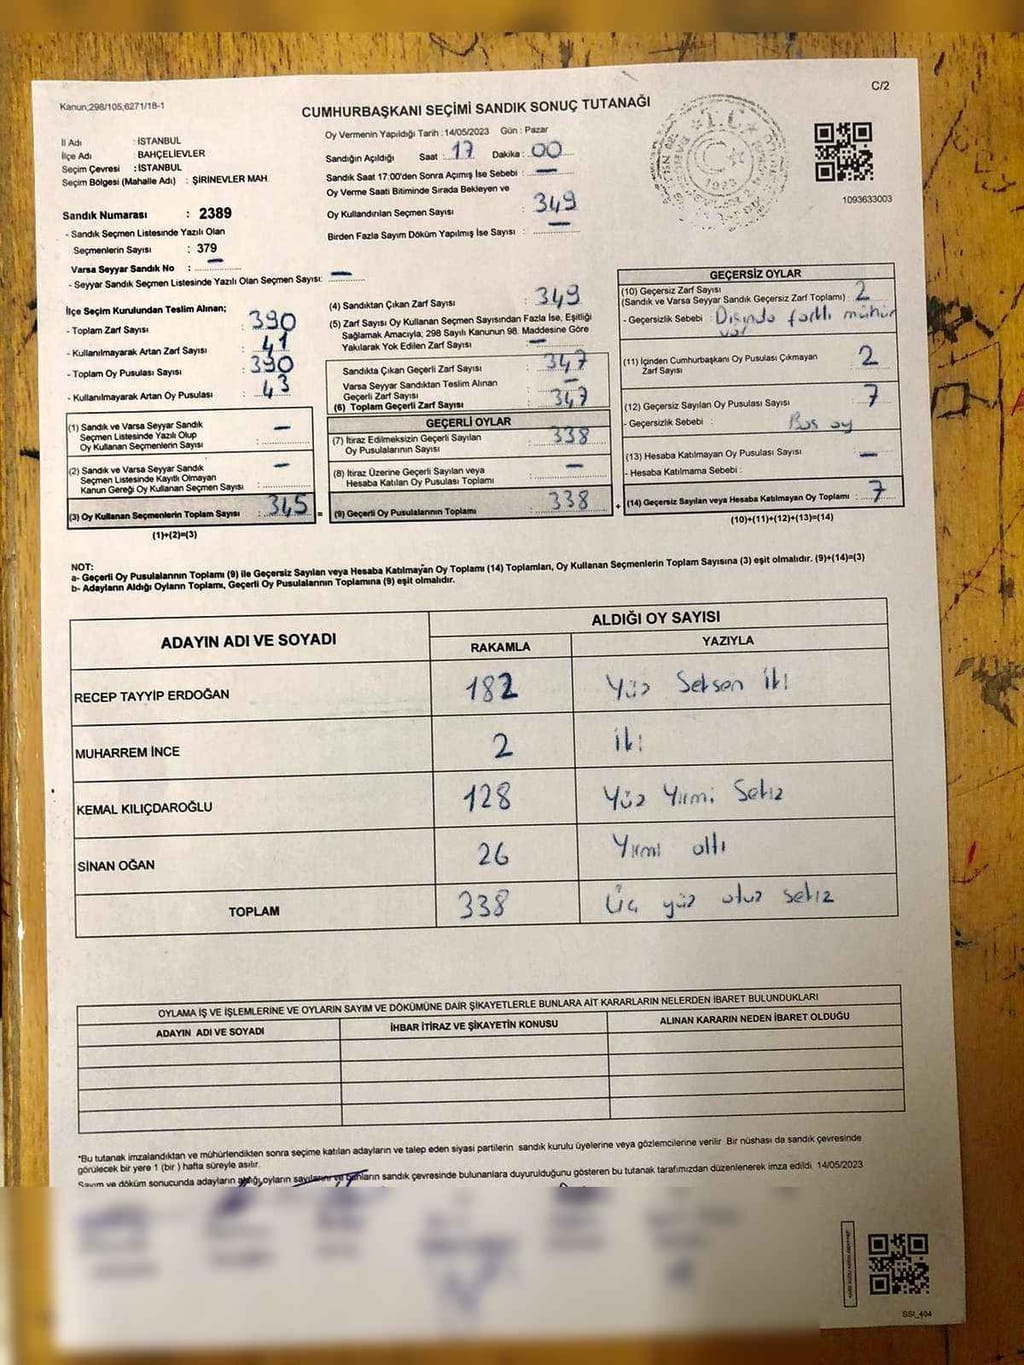 Kanun;298/105,6271/18-1
C/2
CUMHURBAŞKANI SEÇİMİ SANDIK SONUÇ TUTANAĞI
İl Adı : İSTANBUL
İlçe Adı : BAHÇELİEVLER
Seçim Çevresi : İSTANBUL
Seçim Bölgesi (Mahalle Adı) : ŞİRİNEVLER MAH.
Sandık Numarası : 2389
- Sandık Seçmen Listesinde Yazılı Olan
Seçmenlerin Sayısı : 379
Varsa Seyyar Sandık No : —
- Seyyar Sandık Seçmen Listesinde Yazılı Olan Seçmen Sayısı: —
Oy Vermenin Yapıldığı Tarih : 14/05/2023 Gün : Pazar
Sandığın Açıldığı Saat : 17 Dakika : 00
Sandık Saat 17:00'den Sonra Açımış İse Sebebi : —
Oy Verme Saati Bitiminde Sırada Bekleyen ve
Oy Kullandırılan Seçmen Sayısı : 349
Birden Fazla Sayım Döküm Yapılmış İse Sayısı : —
T.C.
1923
1093633003
İlçe Seçim Kurulundan Teslim Alınan;
- Toplam Zarf Sayısı : 390
- Kullanılmayarak Artan Zarf Sayısı : 41
- Toplam Oy Pusulası Sayısı : 390
- Kullanılmayarak Artan Oy Pusulası : 43
(1) Sandık ve Varsa Seyyar Sandık
Seçmen Listesinde Yazılı Olup
Oy Kullanan Seçmenlerin Sayısı : —
(2) Sandık ve Varsa Seyyar Sandık
Seçmen Listesinde Kayıtlı Olmayan
Kanun Gereği Oy Kullanan Seçmen Sayısı : —
(3) Oy Kullanan Seçmenlerin Toplam Sayısı : 345 =
(1)+(2)=(3)
(4) Sandıktan Çıkan Zarf Sayısı : 349
(5) Zarf Sayısı Oy Kullanan Seçmen Sayısından Fazla İse, Eşitliği
Sağlamak Amacıyla, 298 Sayılı Kanunun 98. Maddesine Göre
Yakılarak Yok Edilen Zarf Sayısı : —
Sandıkta Çıkan Geçerli Zarf Sayısı : 347
Varsa Seyyar Sandıktan Teslim Alınan
Geçerli Zarf Sayısı : —
(6) Toplam Geçerli Zarf Sayısı : 347
GEÇERLİ OYLAR
(7) İtiraz Edilmeksizin Geçerli Sayılan
Oy Pusulalarının Sayısı : 338
(8) İtiraz Üzerine Geçerli Sayılan veya
Hesaba Katılan Oy Pusulası Toplamı : —
(9) Geçerli Oy Pusulalarının Toplamı : 338 +
GEÇERSİZ OYLAR
(10) Geçersiz Zarf Sayısı
(Sandık ve Varsa Seyyar Sandık Geçersiz Zarf Toplamı) : 2
- Geçersizlik Sebebi : Dışında farklı mühür
var
(11) İçinden Cumhurbaşkanı Oy Pusulası Çıkmayan
Zarf Sayısı : 2
(12) Geçersiz Sayılan Oy Pusulası Sayısı : 7
- Geçersizlik Sebebi : Boş oy
(13) Hesaba Katılmayan Oy Pusulası Sayısı : —
- Hesaba Katılmama Sebebi :
(14) Geçersiz Sayılan veya Hesaba Katılmayan Oy Toplamı : 7
(10)+(11)+(12)+(13)=(14)
NOT:
a- Geçerli Oy Pusulalarının Toplamı (9) ile Geçersiz Sayılan veya Hesaba Katılmayan Oy Toplamı (14) Toplamları, Oy Kullanan Seçmenlerin Toplam Sayısına (3) eşit olmalıdır. (9)+(14)=(3)
b- Adayların Aldığı Oyların Toplamı, Geçerli Oy Pusulalarının Toplamına (9) eşit olmalıdır.
ADAYIN ADI VE SOYADI
ALDIĞI OY SAYISI
RAKAMLA YAZIYLA
RECEP TAYYİP ERDOĞAN 182 Yüz Seksen iki
MUHARREM İNCE 2 iki
KEMAL KILIÇDAROĞLU 128 Yüz Yirmi Sekiz
SİNAN OĞAN 26 Yirmi altı
TOPLAM 338 Üç yüz otuz sekiz
OYLAMA İŞ VE İŞLEMLERİNE VE OYLARIN SAYIM VE DÖKÜMÜNE DAİR ŞİKAYETLERLE BUNLARA AİT KARARLARIN NELERDEN İBARET BULUNDUKLARI
ADAYIN ADI VE SOYADI İHBAR İTİRAZ VE ŞİKAYETİN KONUSU ALINAN KARARIN NEDEN İBARET OLDUĞU
*Bu tutanak imzalandıktan ve mühürlendikten sonra seçime katılan adayların ve talep eden siyasi partilerin sandık kurulu üyelerine veya gözlemcilerine verilir. Bir nüshası da sandık çevresinde
görülecek bir yere 1 (bir ) hafta süreyle asılır.
Sayım ve döküm sonucunda adayların aldığı oyların sayılarını ve bunların sandık çevresinde bulunanlara duyurulduğunu gösteren bu tutanak tarafımızdan düzenlenerek imza edildi. 14/05/2023
SSI_404